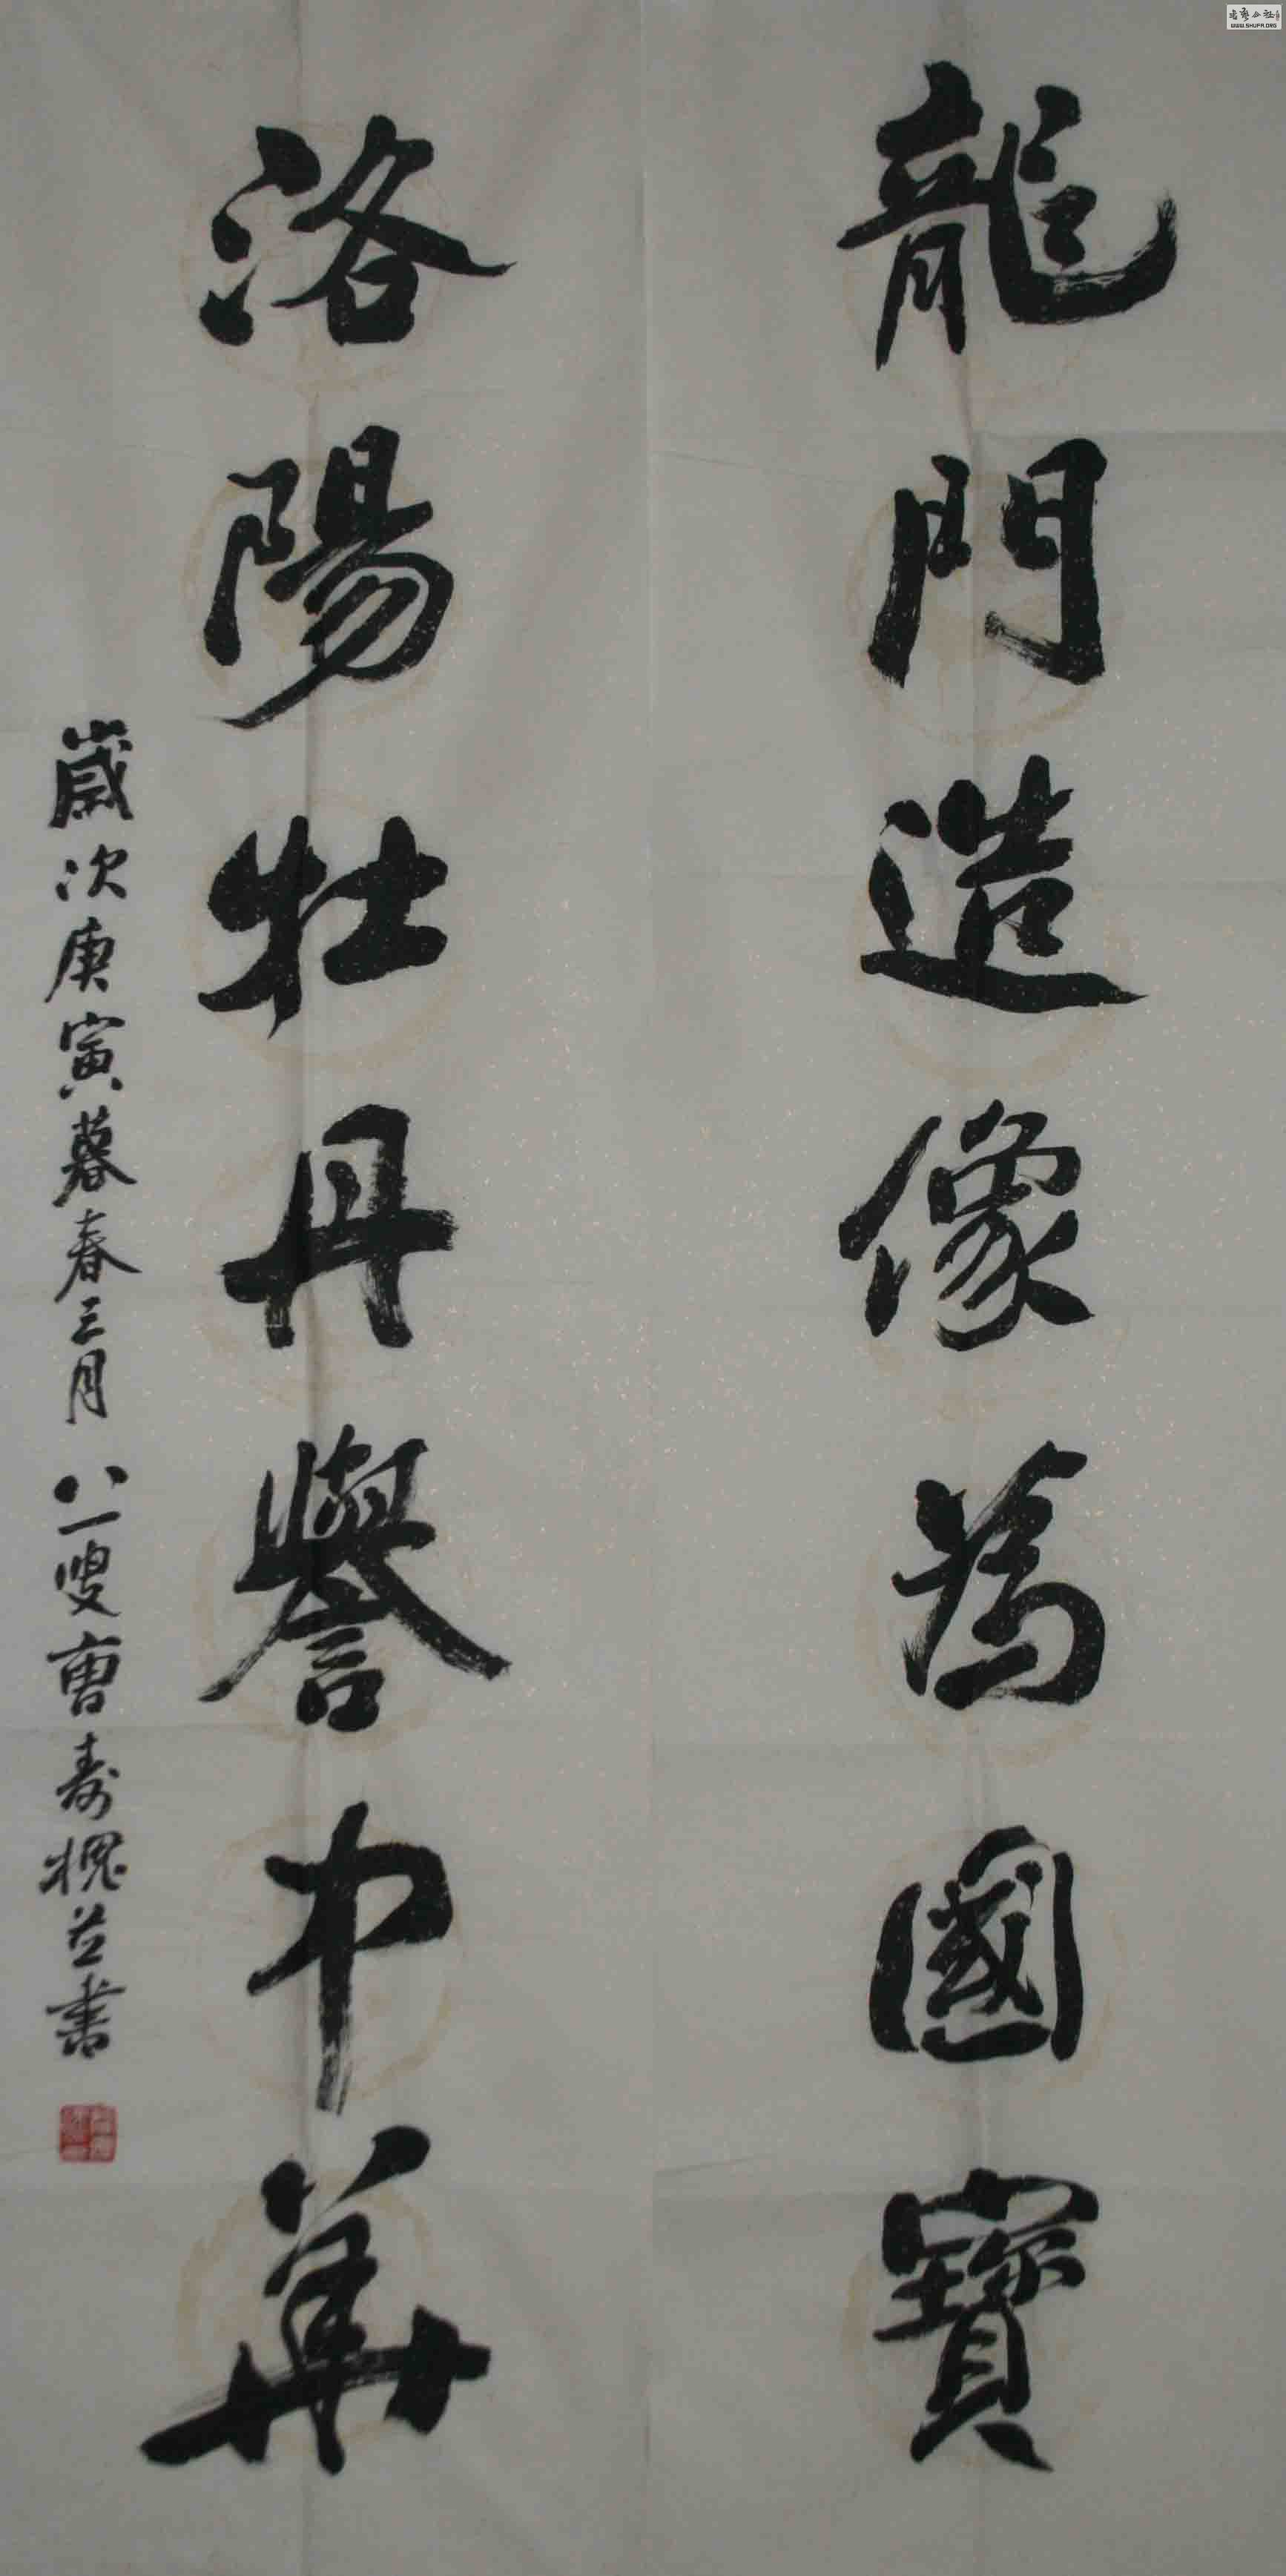 龍門造像為國寶
洛陽牡丹譽中華
歲次庚寅暮春三月 八一叟曹寿槐並书
WWW.SHUFA.ORG